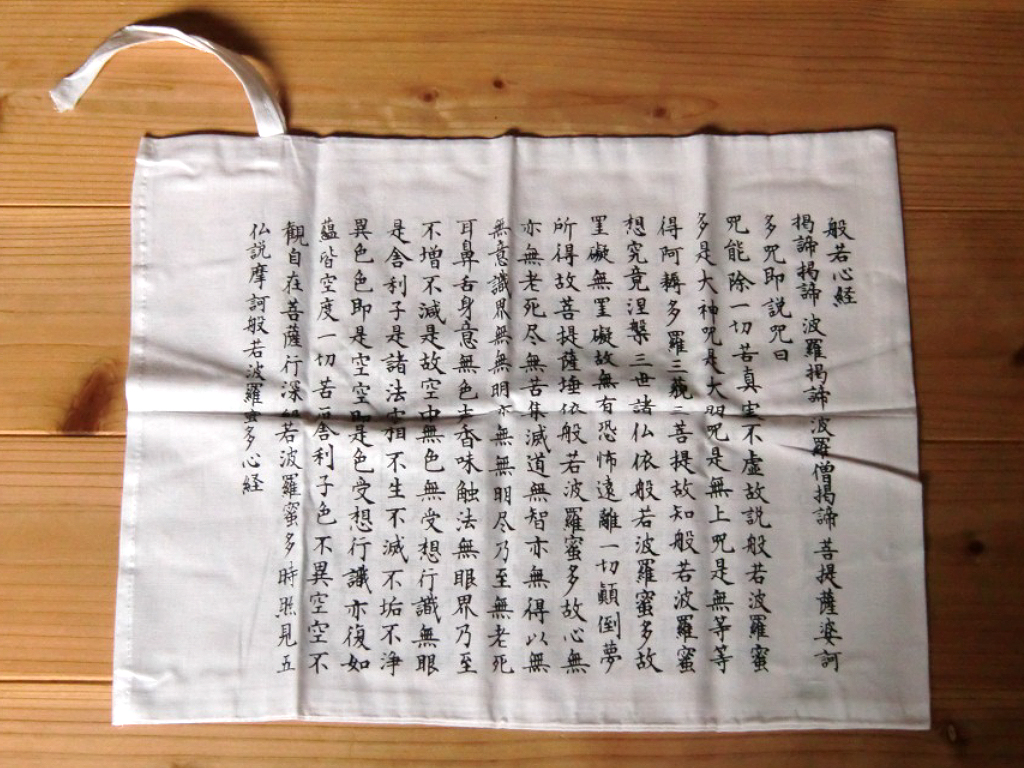 仏説摩訶般若波羅蜜多心経
觀自在菩薩行深般若波羅蜜多時照見五
蘊皆空度一切苦厄舎利子色不異空空不
異色色即是空空即是色受想行識亦復如
是舎利子是諸法空相不生不滅不垢不浄
不増不減是故空中無色無受想行識無眼
耳鼻舌身意無色声香味触法無眼界乃至
無意識界無無明亦無無明尽乃至無老死
亦無老死尽無苦集滅道無智亦無得以無
所得故菩提薩埵依般若波羅蜜多故心無
罣礙無罣礙故無有恐怖遠離一切顛倒夢
想究竟涅槃三世諸仏依般若波羅蜜多故
得阿耨多羅三藐三菩提故知般若波羅蜜
多是大神咒是大明咒是無上咒是無等等
咒能除一切苦真実不虚故説般若波羅蜜
多咒即説咒曰
掲諦掲諦 波羅掲諦 波羅僧掲諦 菩提薩婆訶
般若心経